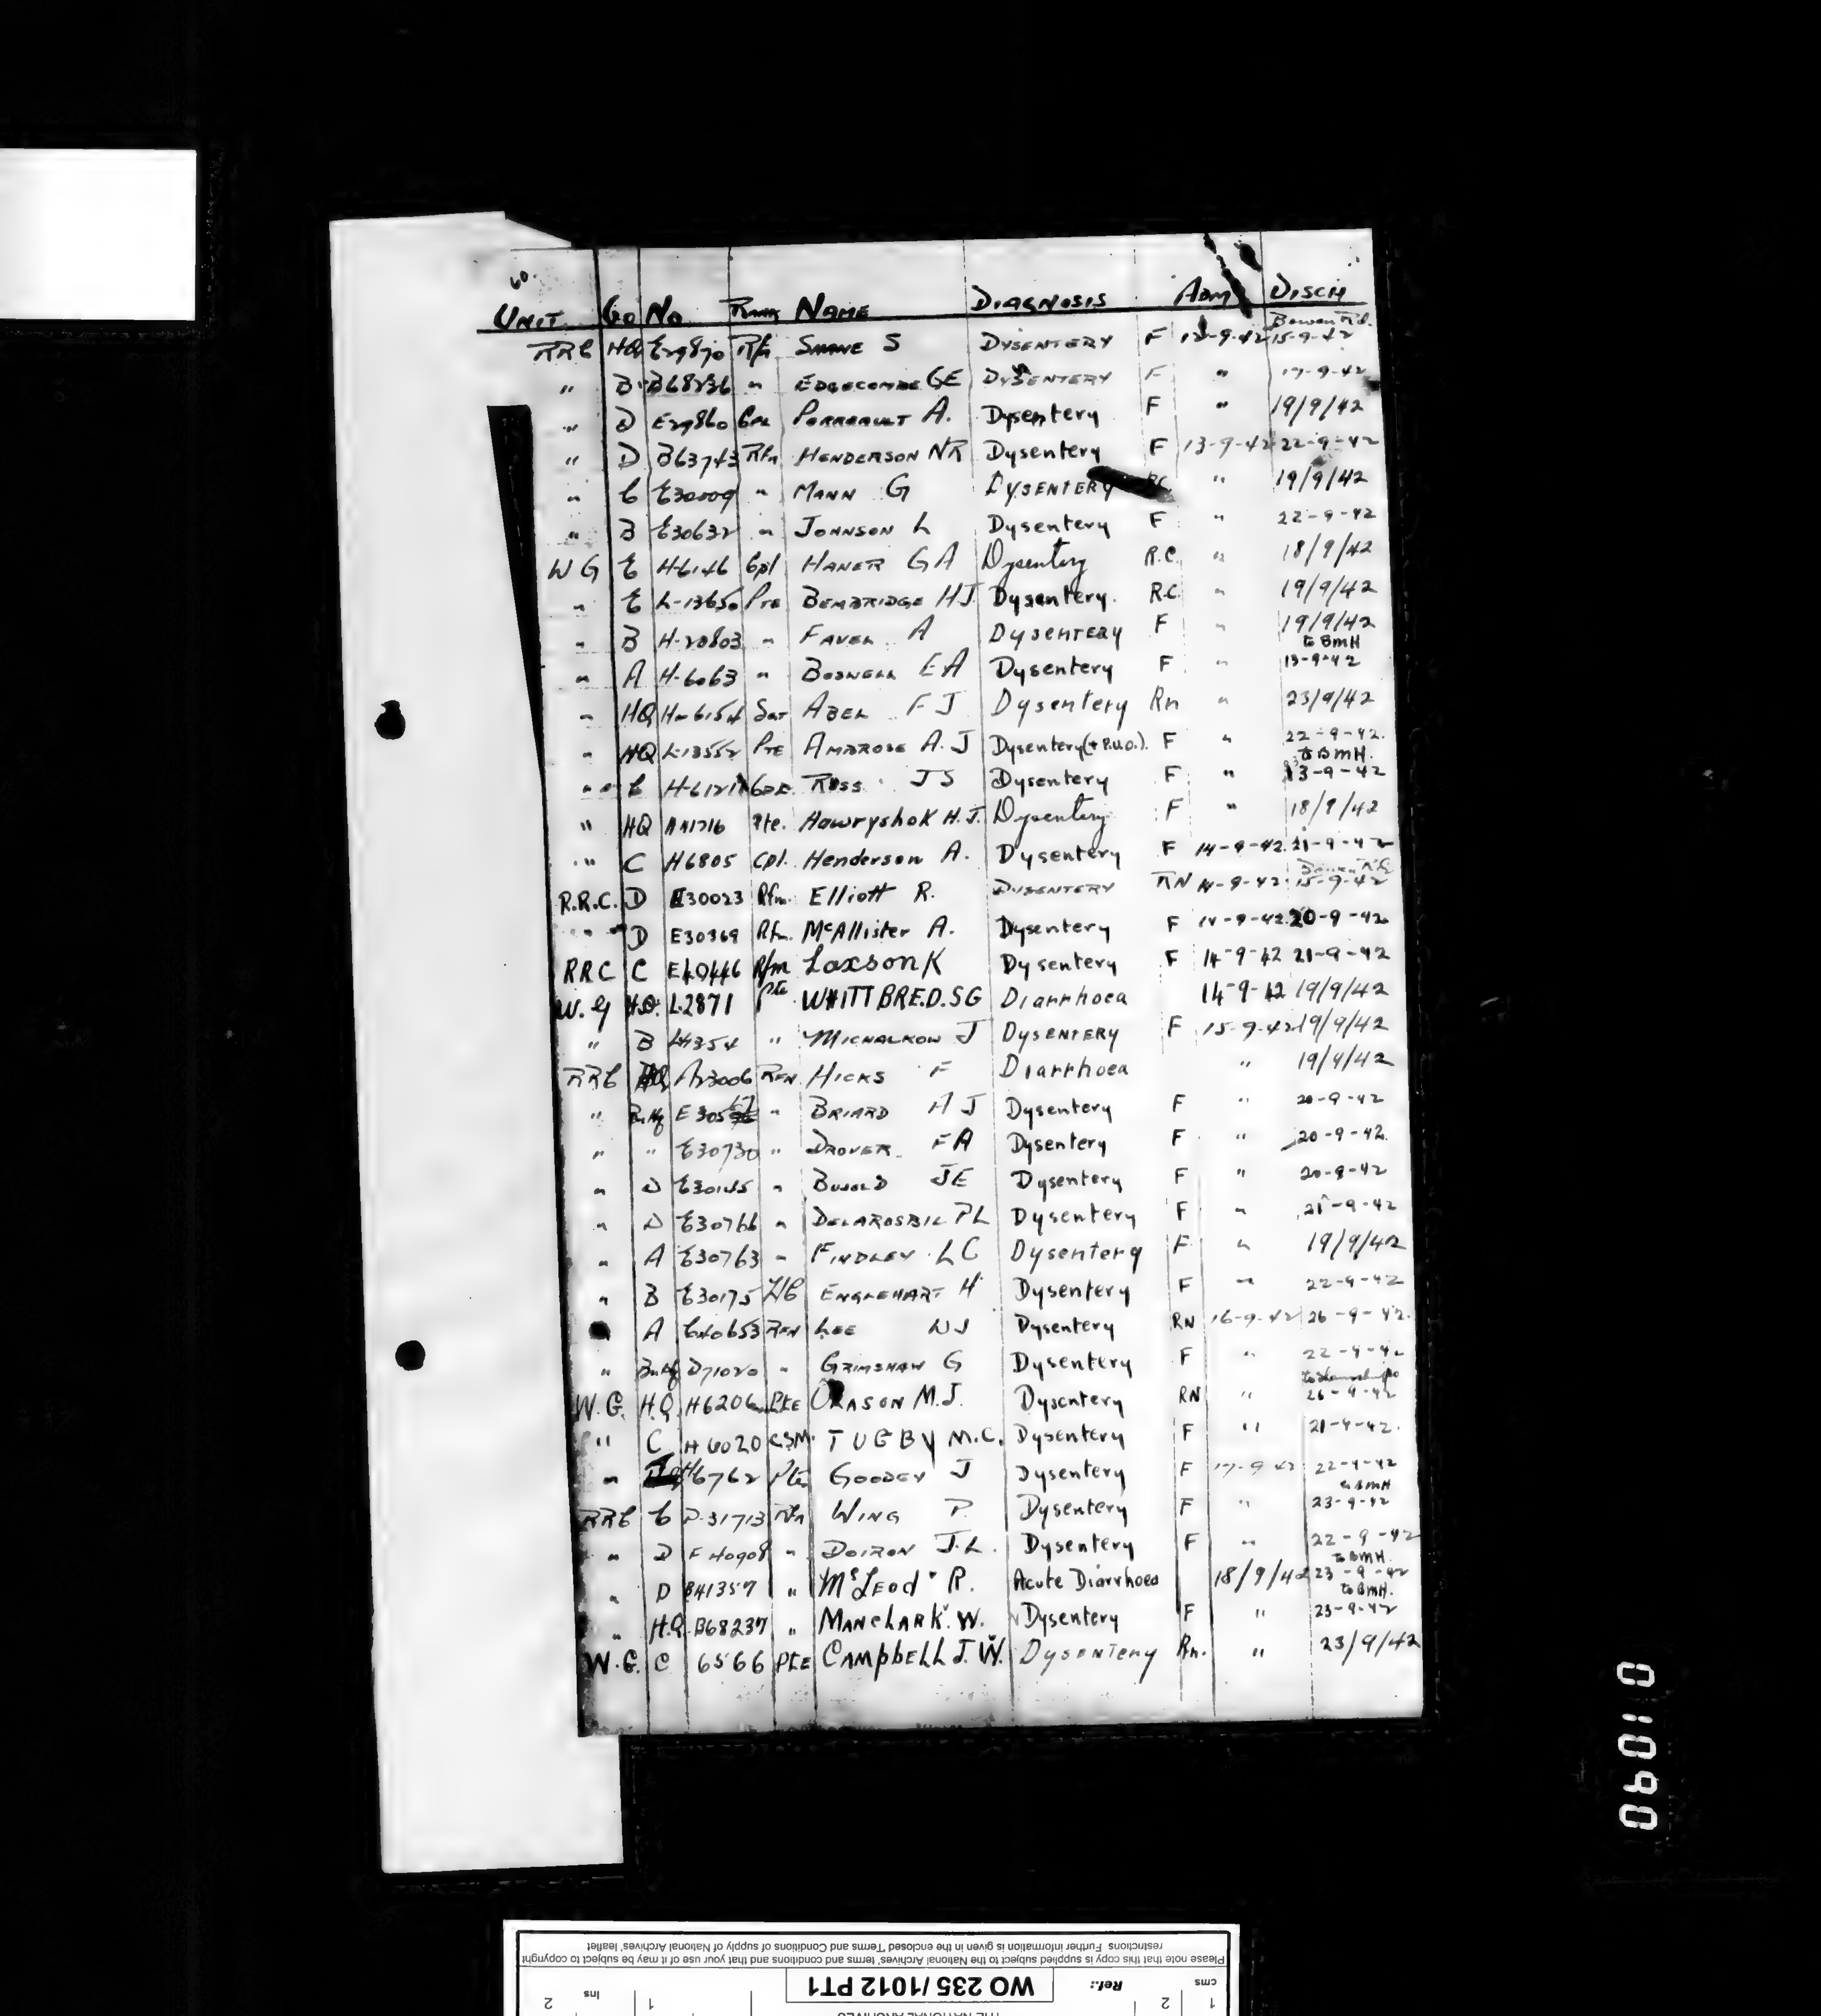 60.
UNIT Co No Rank NAME DIAGNOSIS ADM DISCH
Bowen Rd.
RRC HQ E29870 Rfn S DYSENTERY F 12-9-42 15-9-42
" B B68236 " EDGECOMBE GE DYSENTERY F " 17-9-42
" D E29860 Cpl PORREAULT A. Dysentery F " 19/9/42
" D B63743 Rfn HENDERSON NR Dysentery F 13-9-42 22-9-42
" C E30009 " MANN G DYSENTERY RC " 19/9/42
" B E30632 " JOHNSON L Dysentery F " 22-9-42
W G E H-6146 Cpl HANER G A Dysentery R.C. " 18/9/42
" E L-13650 Pte BEMBRIDGE HJ Dysentery. R.C. " 19/9/42
" B H-20803 " FAVEL A DYSENTERY F " 19/9/42
to BMH
" A H-6063 " BOSWELL E A Dysentery F " 13-9-42
" HQ H-6154 Sgt ABEL F J Dysentery Rn " 23/9/42
" HQ L-13552 Pte AMBROSE A.J Dysentery (+ P.U.O.). F " 22-9-42.
to BMH.
" C Cpl. ROSS JS Dysentery F " 13-9-42
" HQ Pte. Hawryshok H.J. Dysentery F " 18/9/42
" C H6805 Cpl. Henderson A. Dysentery F 14-9-42 21-9-42
R.R.C. D E30023 Rfm. Elliott R. DYSENTERY RN 14-9-42 15-9-42
" D E30369 Rfm. McAllister A. Dysentery F 14-9-42 20-9-42
RRC C E40446 Rfm Laxson K Dysentery F 14-9-42 21-9-42
W. G H.Q. L2871 Pte WHITTBRE.D. SG Diarrhoea 14-9-42 19/9/42
" B " MICHALKOW J DYSENTERY F 15-9-42 19/9/42
RRC HQ A23006 RFN HICKS F Diarrhoea " 19/9/42
" Bn Hq E305 " BRIARD A J Dysentery F " 20-9-42
" " E30730 " DROVER FA Dysentery F " 20-9-42.
" D E30145 " BUJOLD JE Dysentery F " 20-9-42
" D E30766 " DELAROSBIL PL Dysentery F " 21-9-42
" A E30763 " FINDLEY LC Dysentery F " 19/9/42
" B E30175 L/C ENGLEHART H Dysentery F " 22-9-42
A E40653 RFN LEE WJ Dysentery RN 16-9-42 26-9-42.
" Bn Hq D71020 " GRIMSHAW G Dysentery F " 22-9-42
W.G. H.Q. H6206 Pte ORASON M.J. Dysentery RN " 26-9-42
" C H6020 CSM. TUGBY M.C. Dysentery F " 21-9-42.
" H6762 Pte GOODEY J Dysentery F 17-9-42 22-9-42
to BMH
RRC C D-31713 Rfn WING P. Dysentery F " 23-9-42
" D F40908 " DOIRON J.L. Dysentery F " 22-9-42
to BMH.
" D B41357 " McLeod R. Acute Diarrhoea 18/9/42 23-9-42
to BMH.
" H.Q. B68237 " MANCHARK. W. Dysentery F " 23-9-42
W.G. C 6566 PtE CAMPBELL J.W. Dysentery Rn. " 23/9/42
01090
Please note that this copy is supplied subject to the National Archives' terms and conditions and that your use of it may be subject to copyright
restrictions Further information is given in the enclosed Terms and Conditions of supply of National Archives' leaflet
cms 1 2 Ref.: WO 235/1012 PT1 1 Ins 2